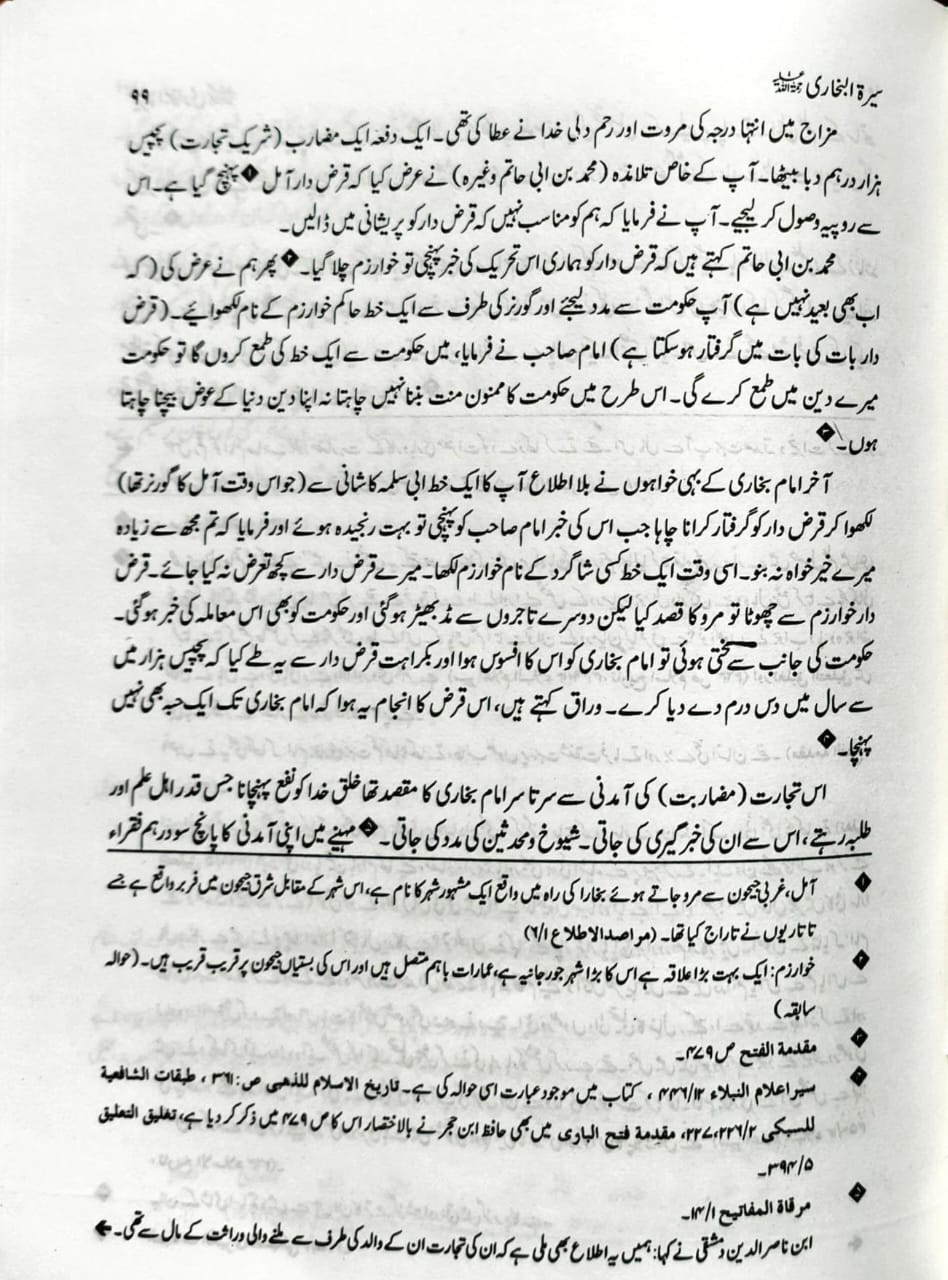 سیرۃ البخاری رحمۃ اللہ علیہ ۹۹
مزاج میں انتہا درجہ کی مروت اور رحم دلی خدا نے عطا کی تھی۔ ایک دفعہ ایک مضارب (شریک تجارت) پچیس
ہزار درہم دبا بیٹھا۔ آپ کے خاص تلامذہ (محمد بن ابی حاتم وغیرہ) نے عرض کیا کہ قرض دار آمل ۱ پہنچ گیا ہے۔ اس
سے روپیہ وصول کر لیجیے۔ آپ نے فرمایا کہ ہم کو مناسب نہیں کہ قرض دار کو پریشانی میں ڈالیں۔
محمد بن ابی حاتم کہتے ہیں کہ قرض دار کو ہماری اس تحریک کی خبر پہنچی تو خوارزم چلا گیا۔ ۲ پھر ہم نے عرض کی (کہ
اب بھی بعید نہیں ہے) آپ حکومت سے مدد لیجئے اور گورنر کی طرف سے ایک خط حاکم خوارزم کے نام لکھوائیے۔ (قرض
دار بات کی بات میں گرفتار ہو سکتا ہے) امام صاحب نے فرمایا، میں حکومت سے ایک خط کی طمع کروں گا تو حکومت
میرے دین میں طمع کرے گی۔ اس طرح میں حکومت کا ممنون منت بننا نہیں چاہتا نہ اپنا دین دنیا کے عوض بیچنا چاہتا
ہوں۔ ۳
آخر امام بخاری کے بہی خواہوں نے بلا اطلاع آپ کا ایک خط ابی سلمہ کاشانی سے (جو اس وقت آمل کا گورنر تھا)
لکھوا کر قرض دار کو گرفتار کرانا چاہا جب اس کی خبر امام صاحب کو پہنچی تو بہت رنجیدہ ہوئے اور فرمایا کہ تم مجھ سے زیادہ
میرے خیر خواہ نہ بنو۔ اسی وقت ایک خط کسی شاگرد کے نام خوارزم لکھا۔ میرے قرض دار سے کچھ تعرض نہ کیا جائے۔ قرض
دار خوارزم سے چھوٹا تو مرو کا قصد کیا لیکن دوسرے تاجروں سے مڈ بھیڑ ہو گئی اور حکومت کو بھی اس معاملہ کی خبر ہو گئی۔
حکومت کی جانب سے سختی ہوئی تو امام بخاری کو اس کا افسوس ہوا اور بکراہت قرض دار سے یہ طے کیا کہ پچیس ہزار میں
سے سال میں دس درم دے دیا کرے۔ وراق کہتے ہیں، اس قرض کا انجام یہ ہوا کہ امام بخاری تک ایک حبہ بھی نہیں
پہنچا۔ ۴
اس تجارت (مضاربت) کی آمدنی سے سرتا سر امام بخاری کا مقصد تھا خلق خدا کو نفع پہنچانا جس قدر اہل علم اور
طلبہ رہتے، اس سے ان کی خبر گیری کی جاتی۔ شیوخ و محدثین کی مدد کی جاتی۔ ۵ مہینے میں اپنی آمدنی کا پانچ سو درہم فقراء
۱ آمل، غربی جیحون سے مرو جاتے ہوئے بخارا کی راہ میں واقع ایک مشہور شہر کا نام ہے، اس شہر کے مقابل شرق جیحون میں فربر واقع ہے جسے
تاتاریوں نے تاراج کیا تھا۔ (مراصد الاطلاع ۶/۱)
۲ خوارزم: ایک بہت بڑا علاقہ ہے اس کا بڑا شہر جورجانیہ ہے، عمارات باہم متصل ہیں اور اس کی بستیاں جیحون پر قریب قریب ہیں۔ (حوالہ
سابقہ)
۳ مقدمة الفتح ص ۴۷۹۔
۴ سیر اعلام النبلاء ۴۴۶/۱۲ ، کتاب میں موجود عبارت اسی حوالہ کی ہے۔ تاریخ الاسلام للذهبی ص: ۳۶۱ ، طبقات الشافعیة
للسبکی ۲۲۷،۲۲۶/۲، مقدمة فتح الباری میں بھی حافظ ابن حجر نے بالاختصار اس کا ص ۴۷۹ میں ذکر کر دیا ہے، تغلیق التعلیق
۳۹۴/۵۔
۵ مرقاة المفاتیح ۱۴/۱۔
ابن ناصر الدین دمشقی نے کہا: ہمیں یہ اطلاع بھی ملی ہے کہ ان کی تجارت ان کے والد کی طرف سے ملنے والی وراثت کے مال سے تھی۔ ←